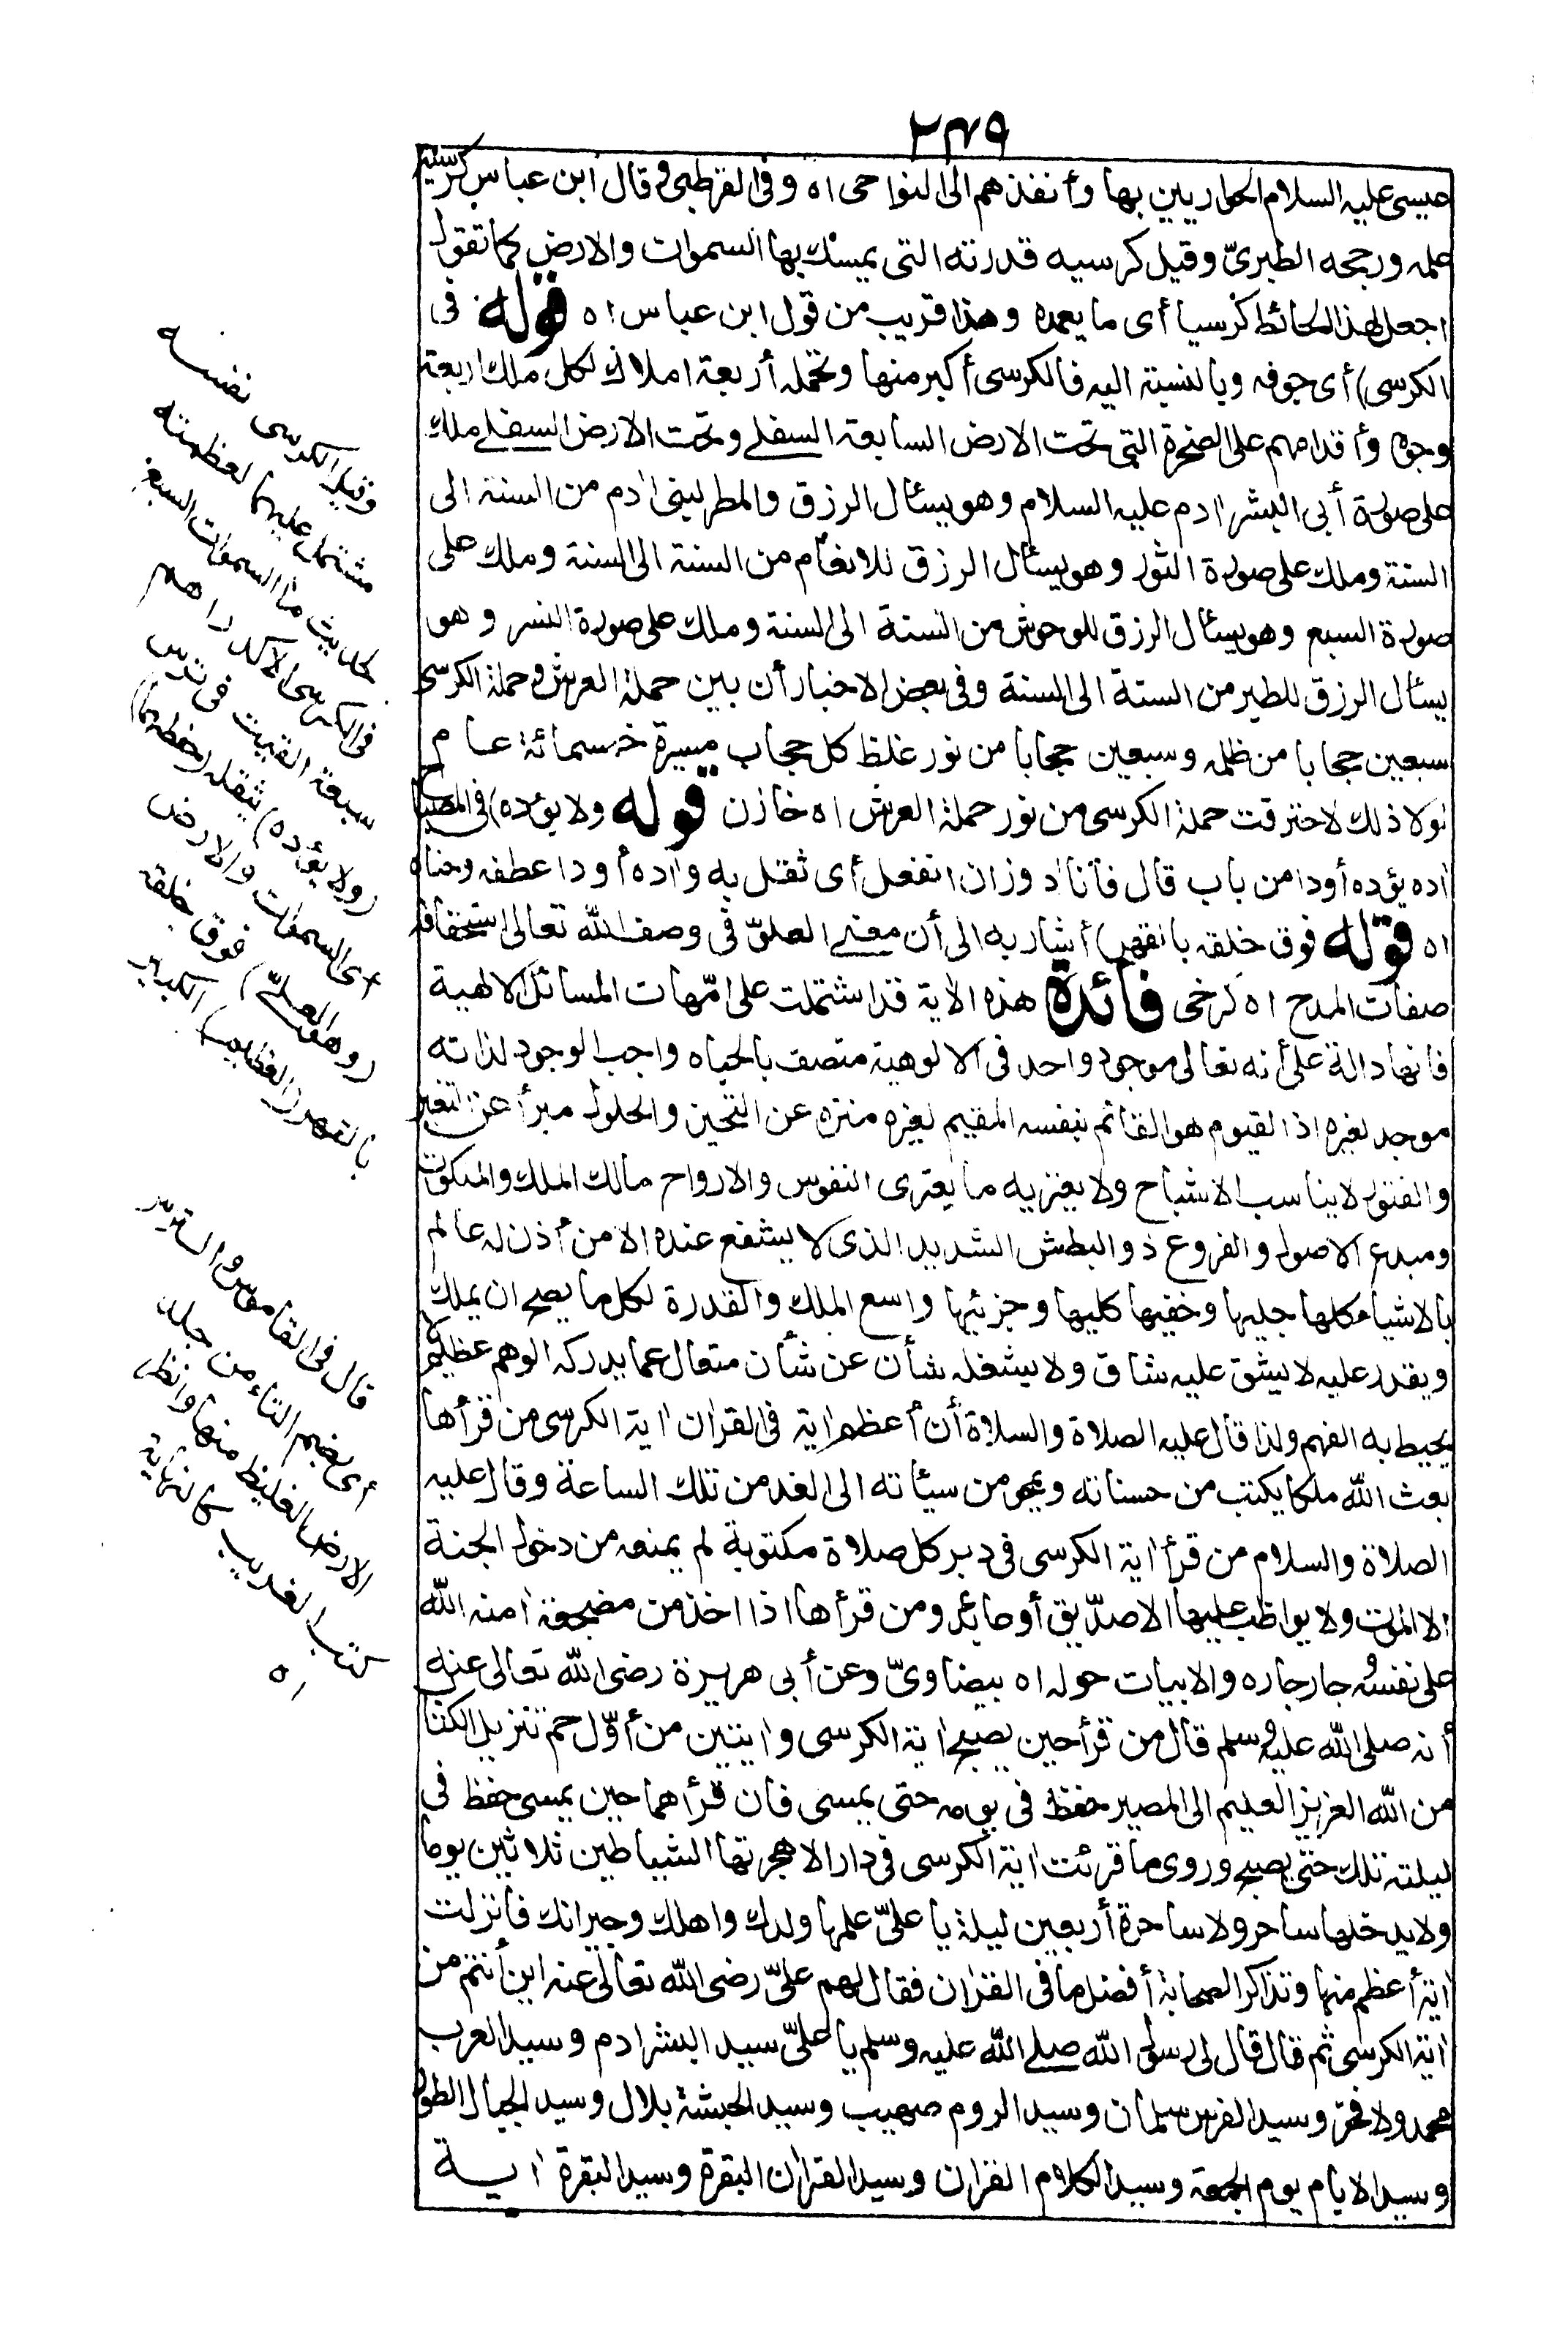 ٢٣٩
عيسى عليه السلام الحواريين بها وأنفذهم الى النواحى اه وفى القرطبى وقال ابن عباس كرسيه
علمه ورجحه الطبرىّ وقيل كرسيه قدرته التى يمسك بها السموات والارض كما تقول
اجعل لهذا الحائط كرسيا أى ما يعمده وهذا قريب من قول ابن عباس اه قوله فى
الكرسى) أى جوفه وبالنسبة اليه فالكرسى أكبر منها وتحمله أربعة املاك لكل ملك اربعة
وجوه وأقدامهم على الصخرة التى تحت الارض السابعة السفلى وتحت الارض السفلى ملك
على صورة أبى البشر ادم عليه السلام وهو يسئال الرزق والمطر لبنى ادم من السنة الى
السنة وملك على صورة الثور وهو يسئال الرزق للانعام من السنة الى السنة وملك على
صورة السبع وهو يسئال الرزق للوحوش من السنة الى السنة وملك على صورة النسر وهو
يسئال الرزق للطير من السنة الى السنة وفى بعض الاخبار أن بين حملة العرش وحملة الكرسى
سبعين حجابا من ظلمه وسبعين حجابا من نور غلظ كل حجاب مسيرة خمسمائة عام
لولا ذلك لاحترقت حملة الكرسى من نور حملة العرش اه خازن قوله ولا يؤده) فى المصباح
اده يؤده أودا من باب قال فآناد وزان انفعل أى ثقل به واده أودا عطفه وحناه
اه قوله فوق خلقه بالقهر) أشار به الى أن معنى العلوّ فى وصف الله تعالى استحقاقه
صفات المدح اه كرخى فائدة هذه الاية قد اشتملت على امّهات المسائل الالهية
فانها دالة على أنه تعالى موجود واحد فى الالوهية متصف بالحياه واجب الوجود لذاته
موجد لغيره اذ القيوم هو القائم بنفسه المقيم لغيره منزه عن التحيز والحلول مبرأ عن التغير
والفتور لا يناسب الاشباح ولا يعتريه ما يعترى النفوس والارواح مالك الملك والملكوت
ومبدع الاصول والفروع ذو البطش الشديد الذى لا يشفع عنده الا من أذن له عالم
بالاشياء كلها جليها وخفيها كليها وجزئيها واسع الملك والقدرة لكل ما يصح ان يملك
ويقدر عليه لا يشق عليه شاق ولا يشغله شأن عن شأن متعال عما يدركه الوهم عظيم لا
يحيط به الفهم ولذا قال عليه الصلاة والسلاة أن أعظم اية فى القران اية الكرسى من قرأها
بعث الله ملكا يكتب من حسناته ويمحو من سيأته الى الغد من تلك الساعة وقال عليه
الصلاة والسلام من قرأ اية الكرسى فى دبر كل صلاة مكتوبة لم يمنعه من دخول الجنة
الا الموت ولا يواظب عليها الا صدّيق أو عابد ومن قرأها اذا اخذ من مضجعه امنه الله
على نفسه وجار جاره والابيات حوله اه بيضاوىّ وعن أبى هريرة رضى الله تعالى عنه
أنه صلى الله عليه وسلم قال من قرأ حين يصبح اية الكرسى وايتين من أوّل حم تنزيل الكتا
من الله العزيز العليم الى المصير حفظ فى يومه حتى يمسى فان قرأهما حين يمسى حفظ فى
ليلته تلك حتى يصبح وروى ما قرئت اية الكرسى فى دار الا هجرتها الشياطين ثلاثين يوما
ولا يدخلها ساحر ولا ساحرة أربعين ليلة يا علىّ علمها ولدك واهلك وجيرانك فانزلت
اية أعظم منها وتذاكر الصحابة أفضل ما فى القران فقال لهم علىّ رضى الله تعالى عنه اين أنتم من
اية الكرسى ثم قال قال لى رسول الله صلى الله عليه وسلم يا علىّ سيد البشر ادم وسيد العرب
محمد ولا فخر وسيد الفرس سلمان وسيد الروم صهيب وسيد الحبشة بلال وسيد الجبال الطور
وسيد الايام يوم الجمعة وسيد الكلام القران وسيد القران البقرة وسيد البقرة اية
وقيل الكرسى نفسه
مشتمل عليهما لعظمته
لحديث ما السموات السبع
فى الكرسى الا كدراهم
سبعة القيت فى ترس
(ولا يؤده) يثقله (حفظهما)
أى السموات والارض
(وهو العلىّ) فوق خلقه
بالقهر (العظيم) الكبير
قال فى القاموس والترس
أى بضم التاء من جلد
الارض الغليظ منها وانظر
كتب الغريب كالنهاية
اه